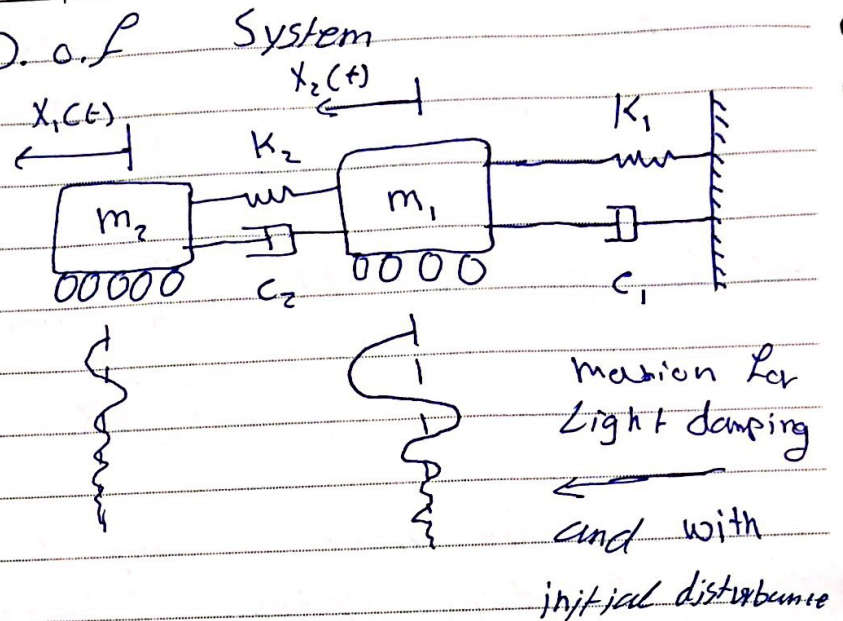 D. o. f System
X₂(t)
X₁(t)
K₂
K₁
m₂
m₁
C₂
C₁
motion for
Light damping
and with
initial disturbance